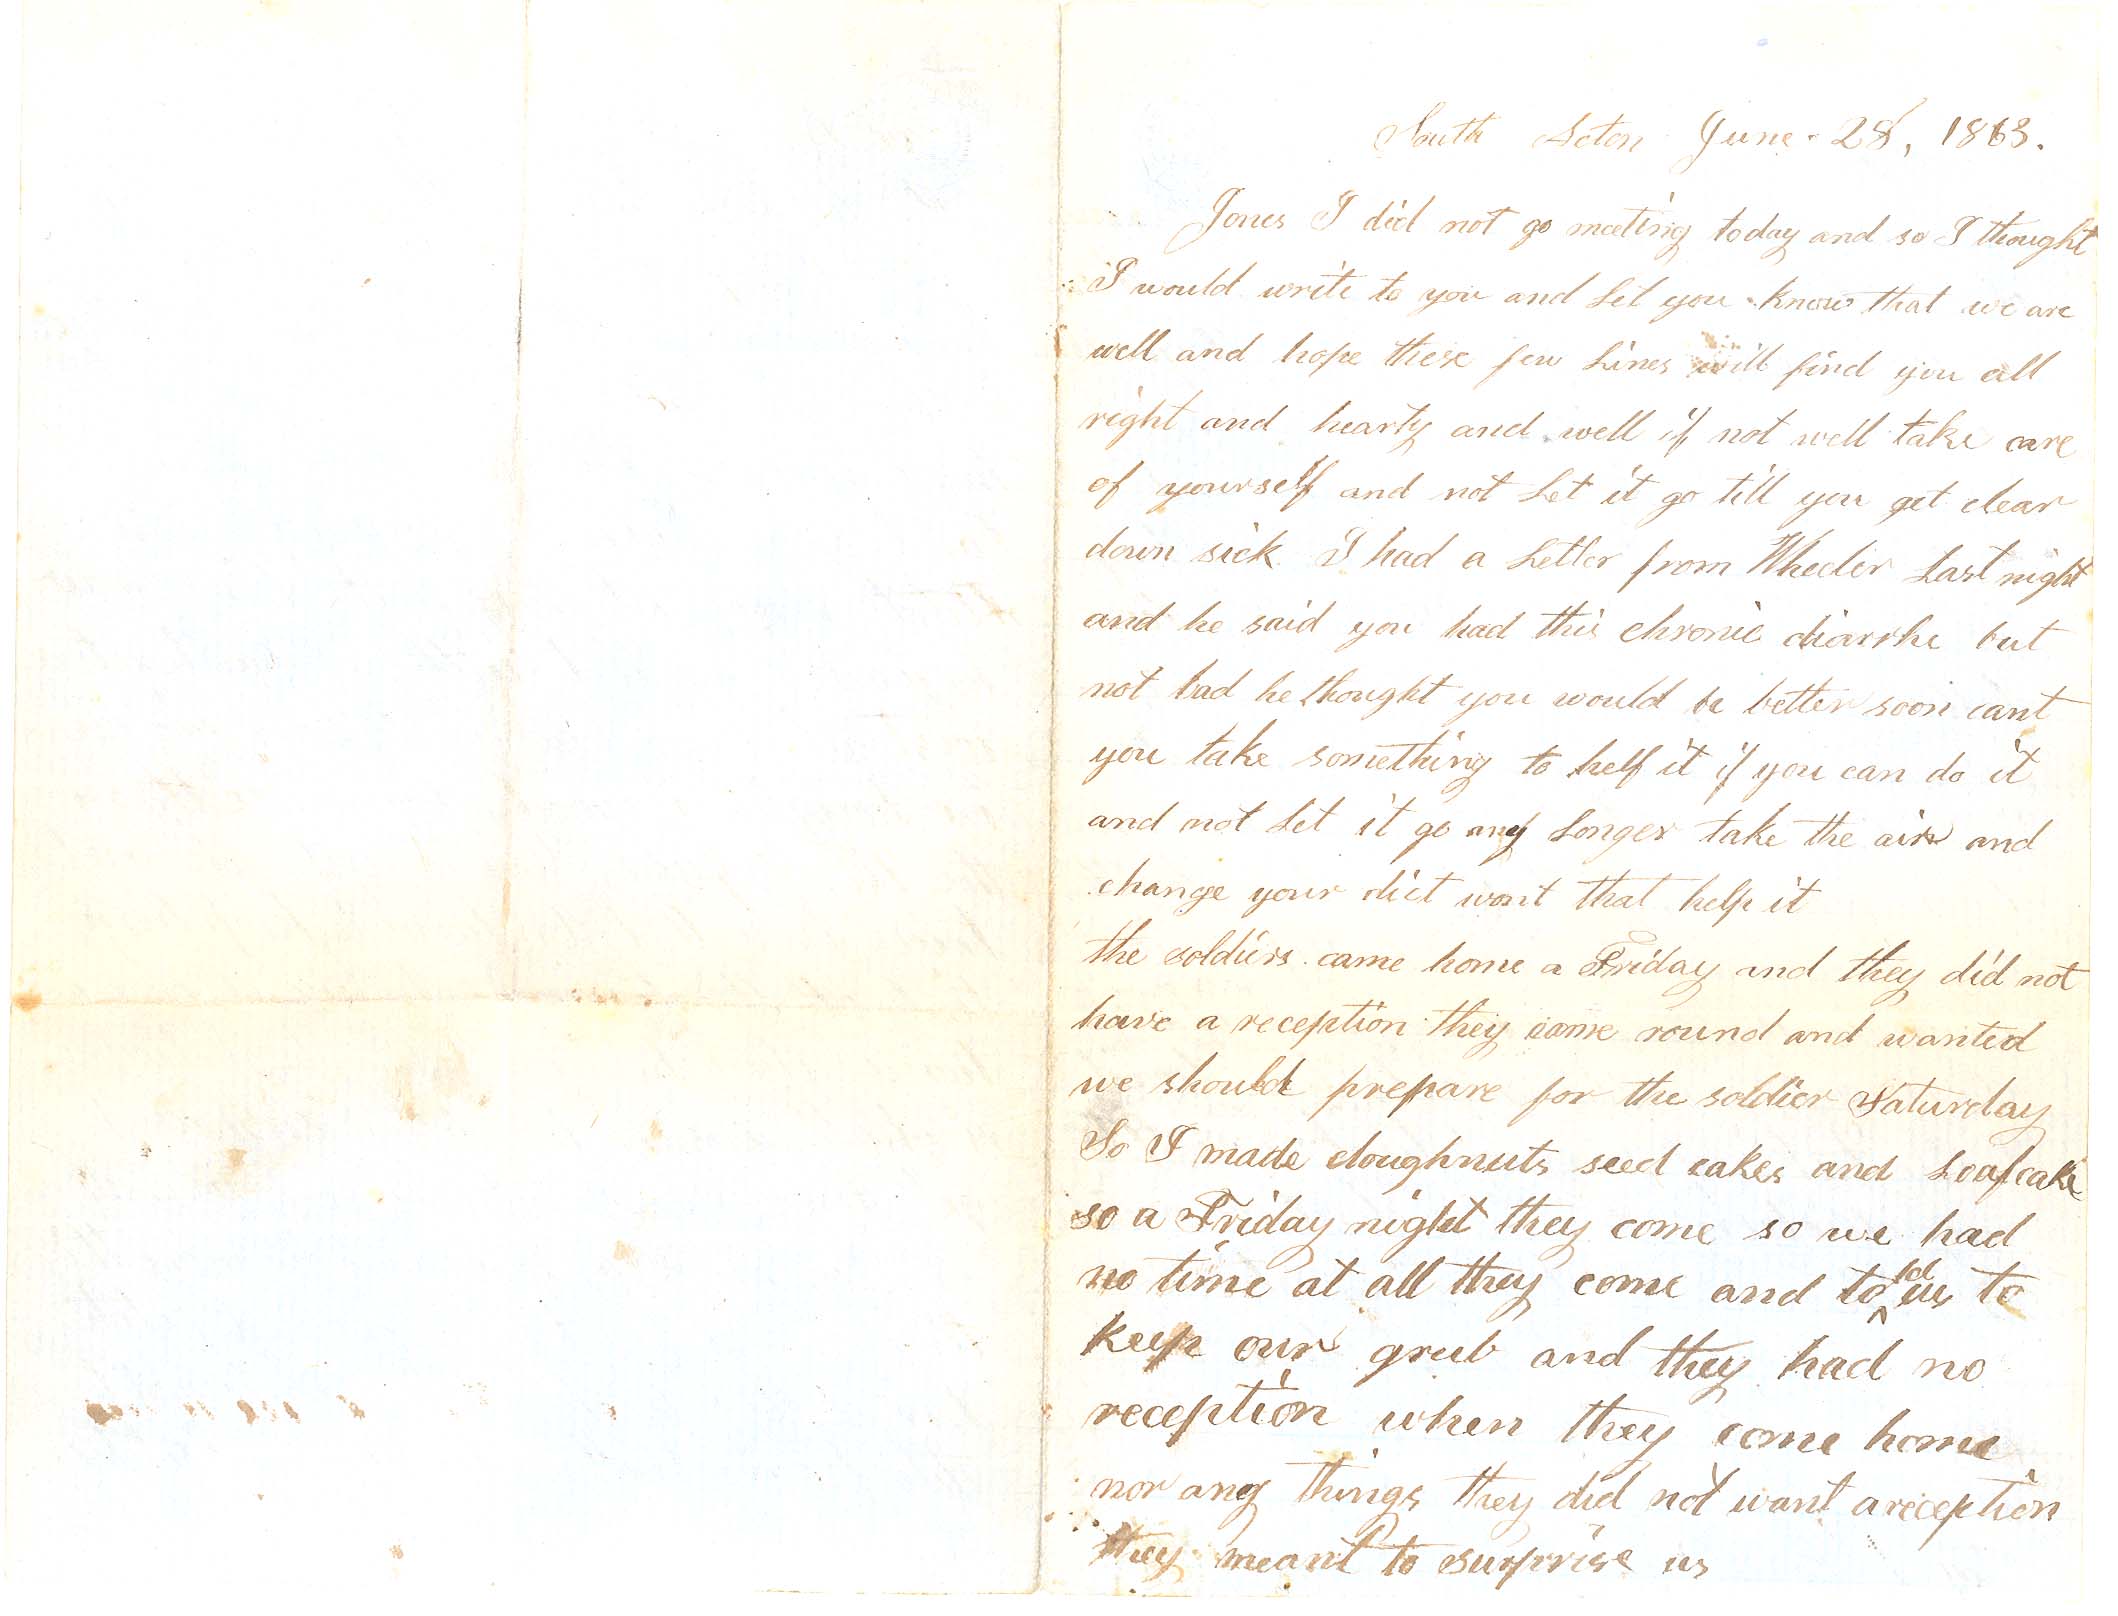 South Acton June 28, 1863.
Jones I did not go meeting today and so I thought
I would write to you and Let you know that we are
well and hope these few Lines will find you all
right and hearty and well if not well take care
of yourself and not Let it go till you get clear
down sick I had a Letter from Wheeler Last night
and he said you had this chronic diarrhe but
not bad he thought you would be better soon cant
you take something to help it if you can do it
and not Let it go any Longer take the air and
change your diet wont that help it
the soldiers came home a Friday and they did not
have a reception they come round and wanted
we should prepare for the soldier Saturday
So I made doughnuts seed cakes and Loafcake
so a Friday night they come so we had
no time at all they come and told us to
keep our grub and they had no
reception when they come home
nor any things they did not want a reception
they meant to surprise us